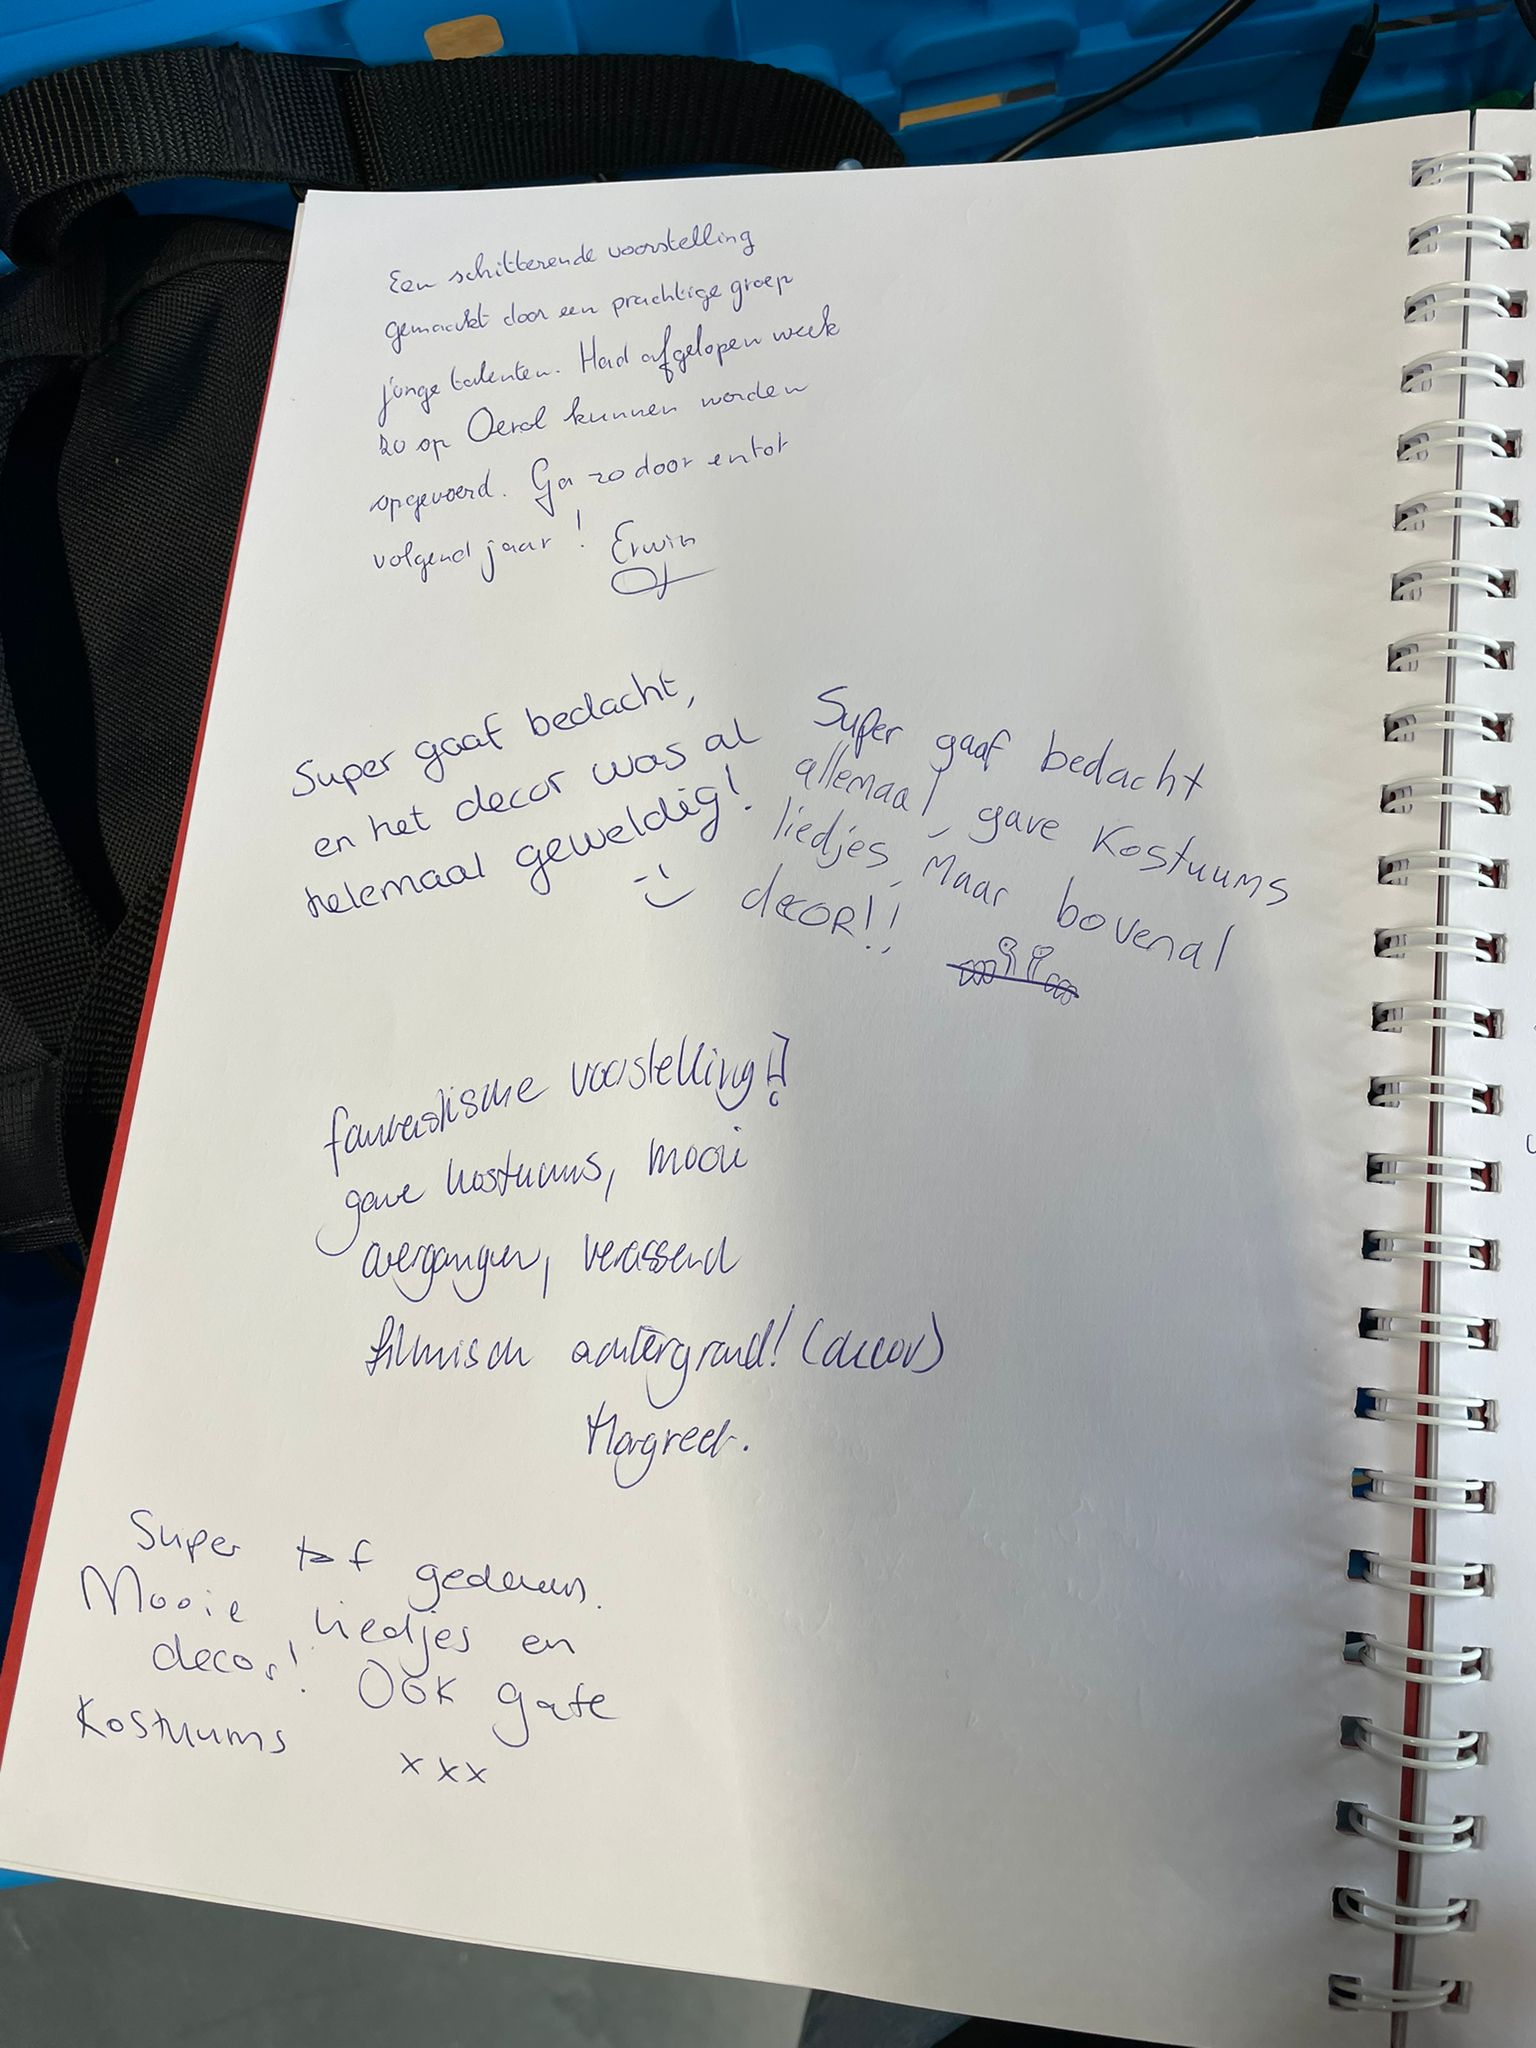 Een schitterende voorstelling
gemaakt door een prachtige groep
jonge talenten. Had afgelopen week
zo op Oerol kunnen worden
opgevoerd. Ga zo door en tot
volgend jaar! Erwin
Super gaaf bedacht,
en het decor was al
helemaal geweldig!
:-)
Super gaaf bedacht
allemaal, gave kostuums
liedjes, maar bovenal
decor!!
fantastische voorstelling!!
gave kostuums, mooi
overgangen, verassend
filmisch achtergrond! (decor)
Margreet.
Super tof gedaan.
Mooie liedjes en
decor! Ook gave
Kostuums xxx